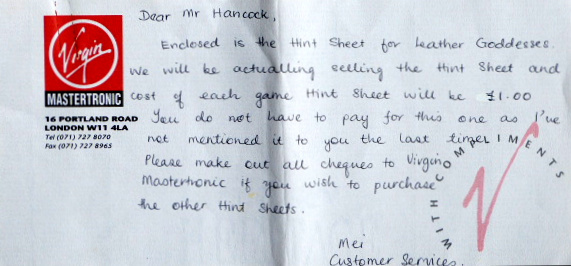 Dear Mr Hancock,
Enclosed is the Hint Sheet for Leather Goddesses.
We will be actualling selling the Hint Sheet and
cost of each game Hint Sheet will be £1.00
You do not have to pay for this one as I've
not mentioned it to you the last time.
Please make out all cheques to Virgin
Mastertronic if you wish to purchase
the other Hint Sheets.
Mei
Customer Services.
Virgin
MASTERTRONIC
16 PORTLAND ROAD
LONDON W11 4LA
Tel (071) 727 8070
Fax (071) 727 8965
WITH COMPLIMENTS